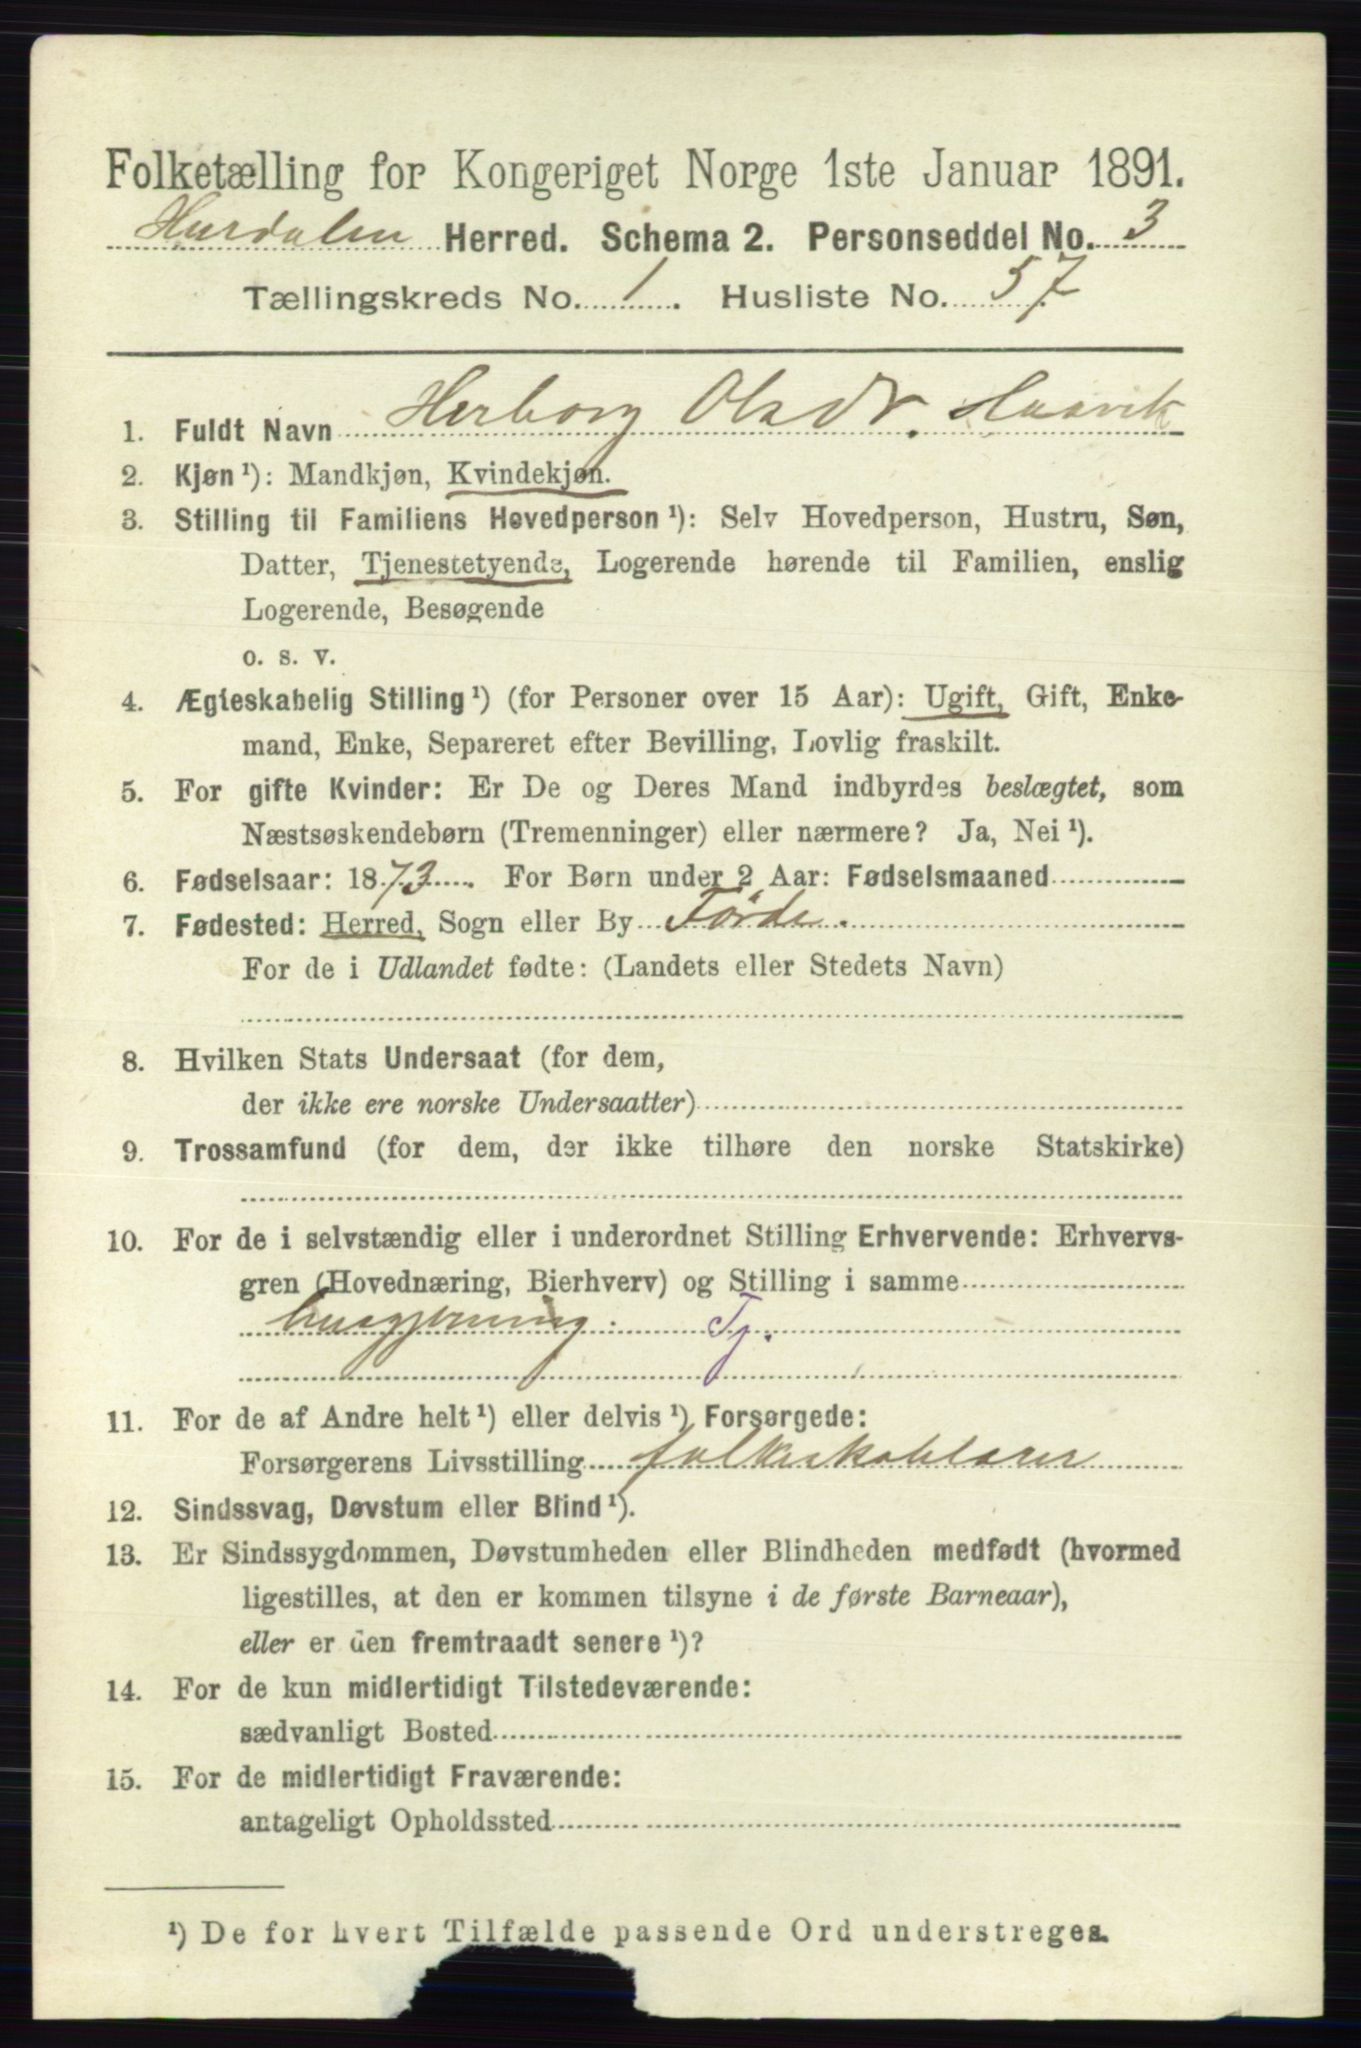 Folketælling for Kongeriget Norge 1ste Januar 1891.
Hurdalen Herred. Schema 2. Personseddel No. 3
Tællingskreds No. 1. Husliste No. 57
1. Fuldt Navn Herborg Olsdr. Haavik
2. Kjøn ¹): Mandkjøn, Kvindekjøn.
3. Stilling til Familiens Hovedperson ¹): Selv Hovedperson, Hustru, Søn,
Datter, Tjenestetyende, Logerende hørende til Familien, enslig
Logerende, Besøgende
o. s. v.
4. Ægteskabelig Stilling ¹) (for Personer over 15 Aar): Ugift, Gift, Enke-
mand, Enke, Separeret efter Bevilling, Lovlig fraskilt.
5. For gifte Kvinder: Er De og Deres Mand indbyrdes beslægtet, som
Næstsøskendebørn (Tremenninger) eller nærmere? Ja, Nei ¹).
6. Fødselsaar: 1873. For Børn under 2 Aar: Fødselsmaaned
7. Fødested: Herred, Sogn eller By Förde.
For de i Udlandet fødte: (Landets eller Stedets Navn)
8. Hvilken Stats Undersaat (for dem,
der ikke ere norske Undersaatter)
9. Trossamfund (for dem, der ikke tilhøre den norske Statskirke)
10. For de i selvstændig eller i underordnet Stilling Erhvervende: Erhvervs-
gren (Hovednæring, Bierhverv) og Stilling i samme
husgjerning. Tj.
11. For de af Andre helt ¹) eller delvis ¹) Forsørgede:
Forsørgerens Livsstilling folkeskolelærer
12. Sindssvag, Døvstum eller Blind ¹).
13. Er Sindssygdommen, Døvstumheden eller Blindheden medfødt (hvormed
ligestilles, at den er kommen tilsyne i de første Barneaar),
eller er den fremtraadt senere ¹)?
14. For de kun midlertidigt Tilstedeværende:
sædvanligt Bosted
15. For de midlertidigt Fraværende:
antageligt Opholdssted
¹) De for hvert Tilfælde passende Ord understreges.